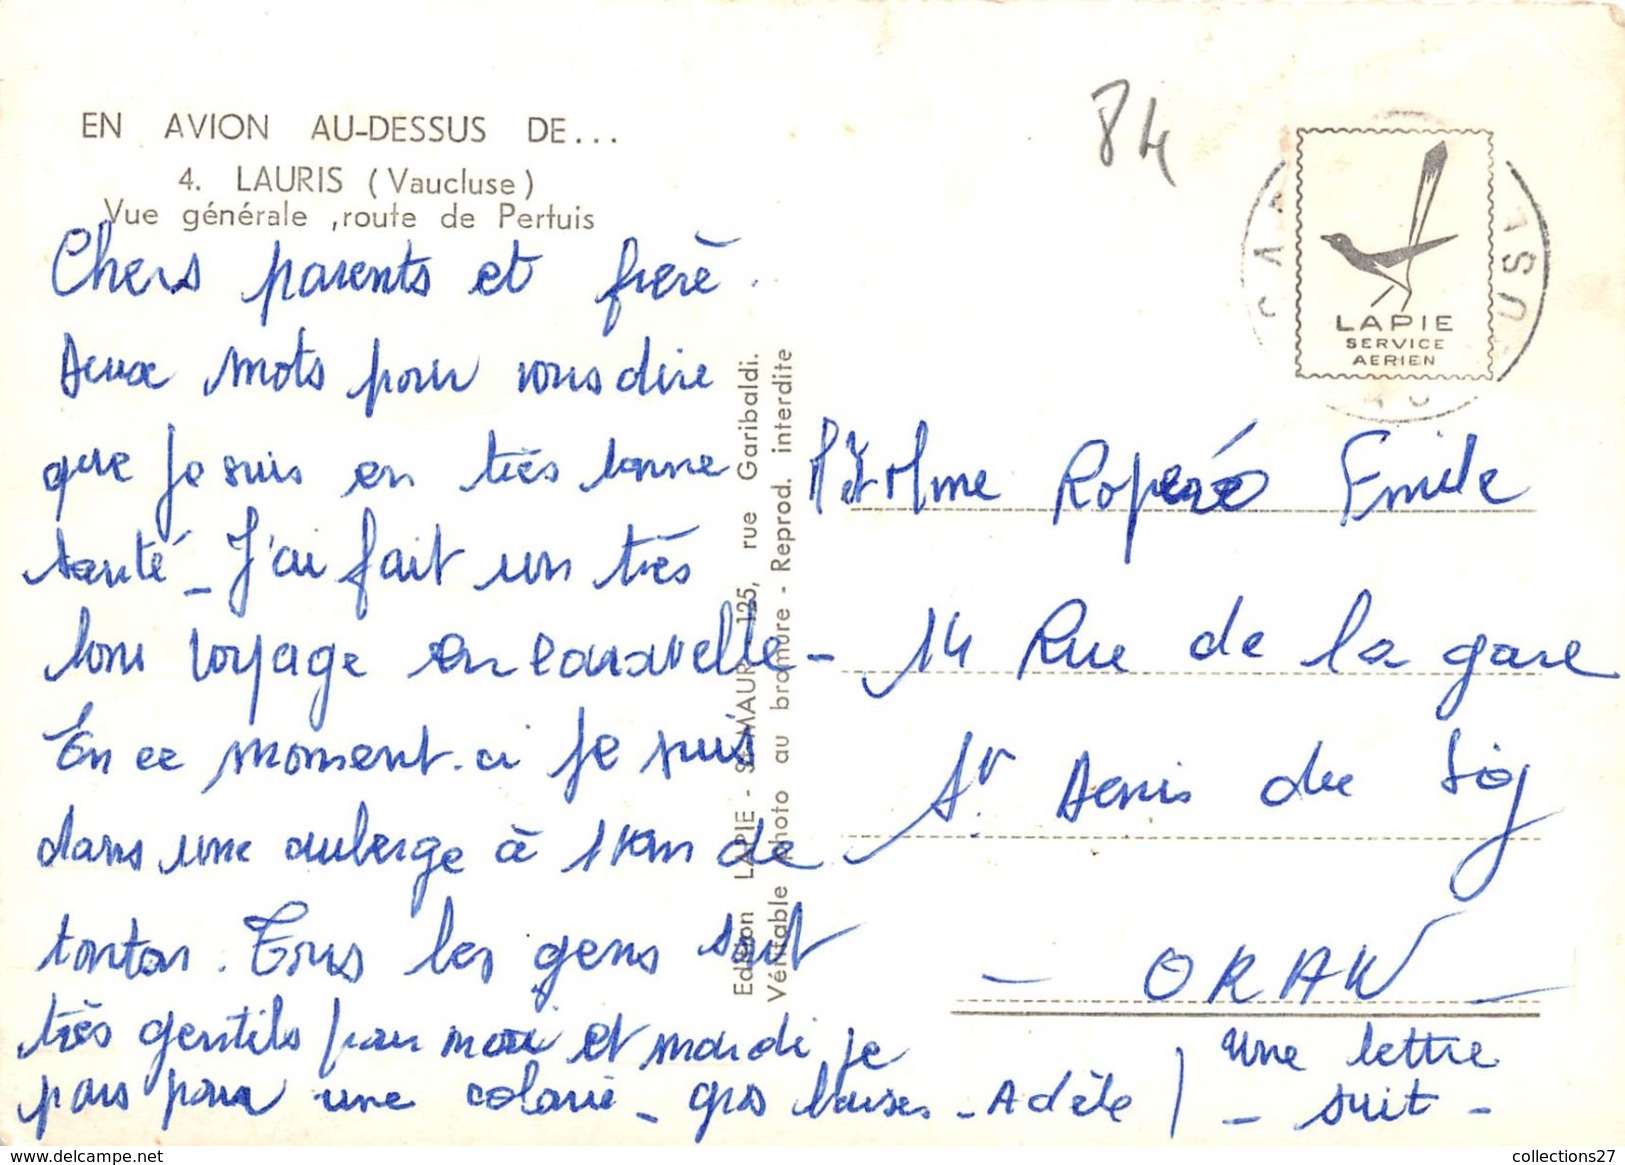 EN AVION AU-DESSUS DE...
4. LAURIS (Vaucluse)
Vue générale ,route de Pertuis
84
LAPIE
SERVICE
AERIEN
Chers parents et frère.
Deux mots pour vous dire
que je suis en très bonne
santé - J'ai fait un très
bon voyage en caravelle -
En ce moment-ci je suis
dans une auberge à 1 km de
tonton. Tous les gens sont
très gentils pour moi et mardi je
pars pour une colonie - gros baises - Adèle
une lettre
- suit -
Edition LAPIE - St-MAUR 125, rue Garibaldi.
Véritable photo au bromure - Reprod. interdite
Mr et Mme Roperó Emile
14 Rue de la gare
St. Denis du Sig
- ORAN -
collections27